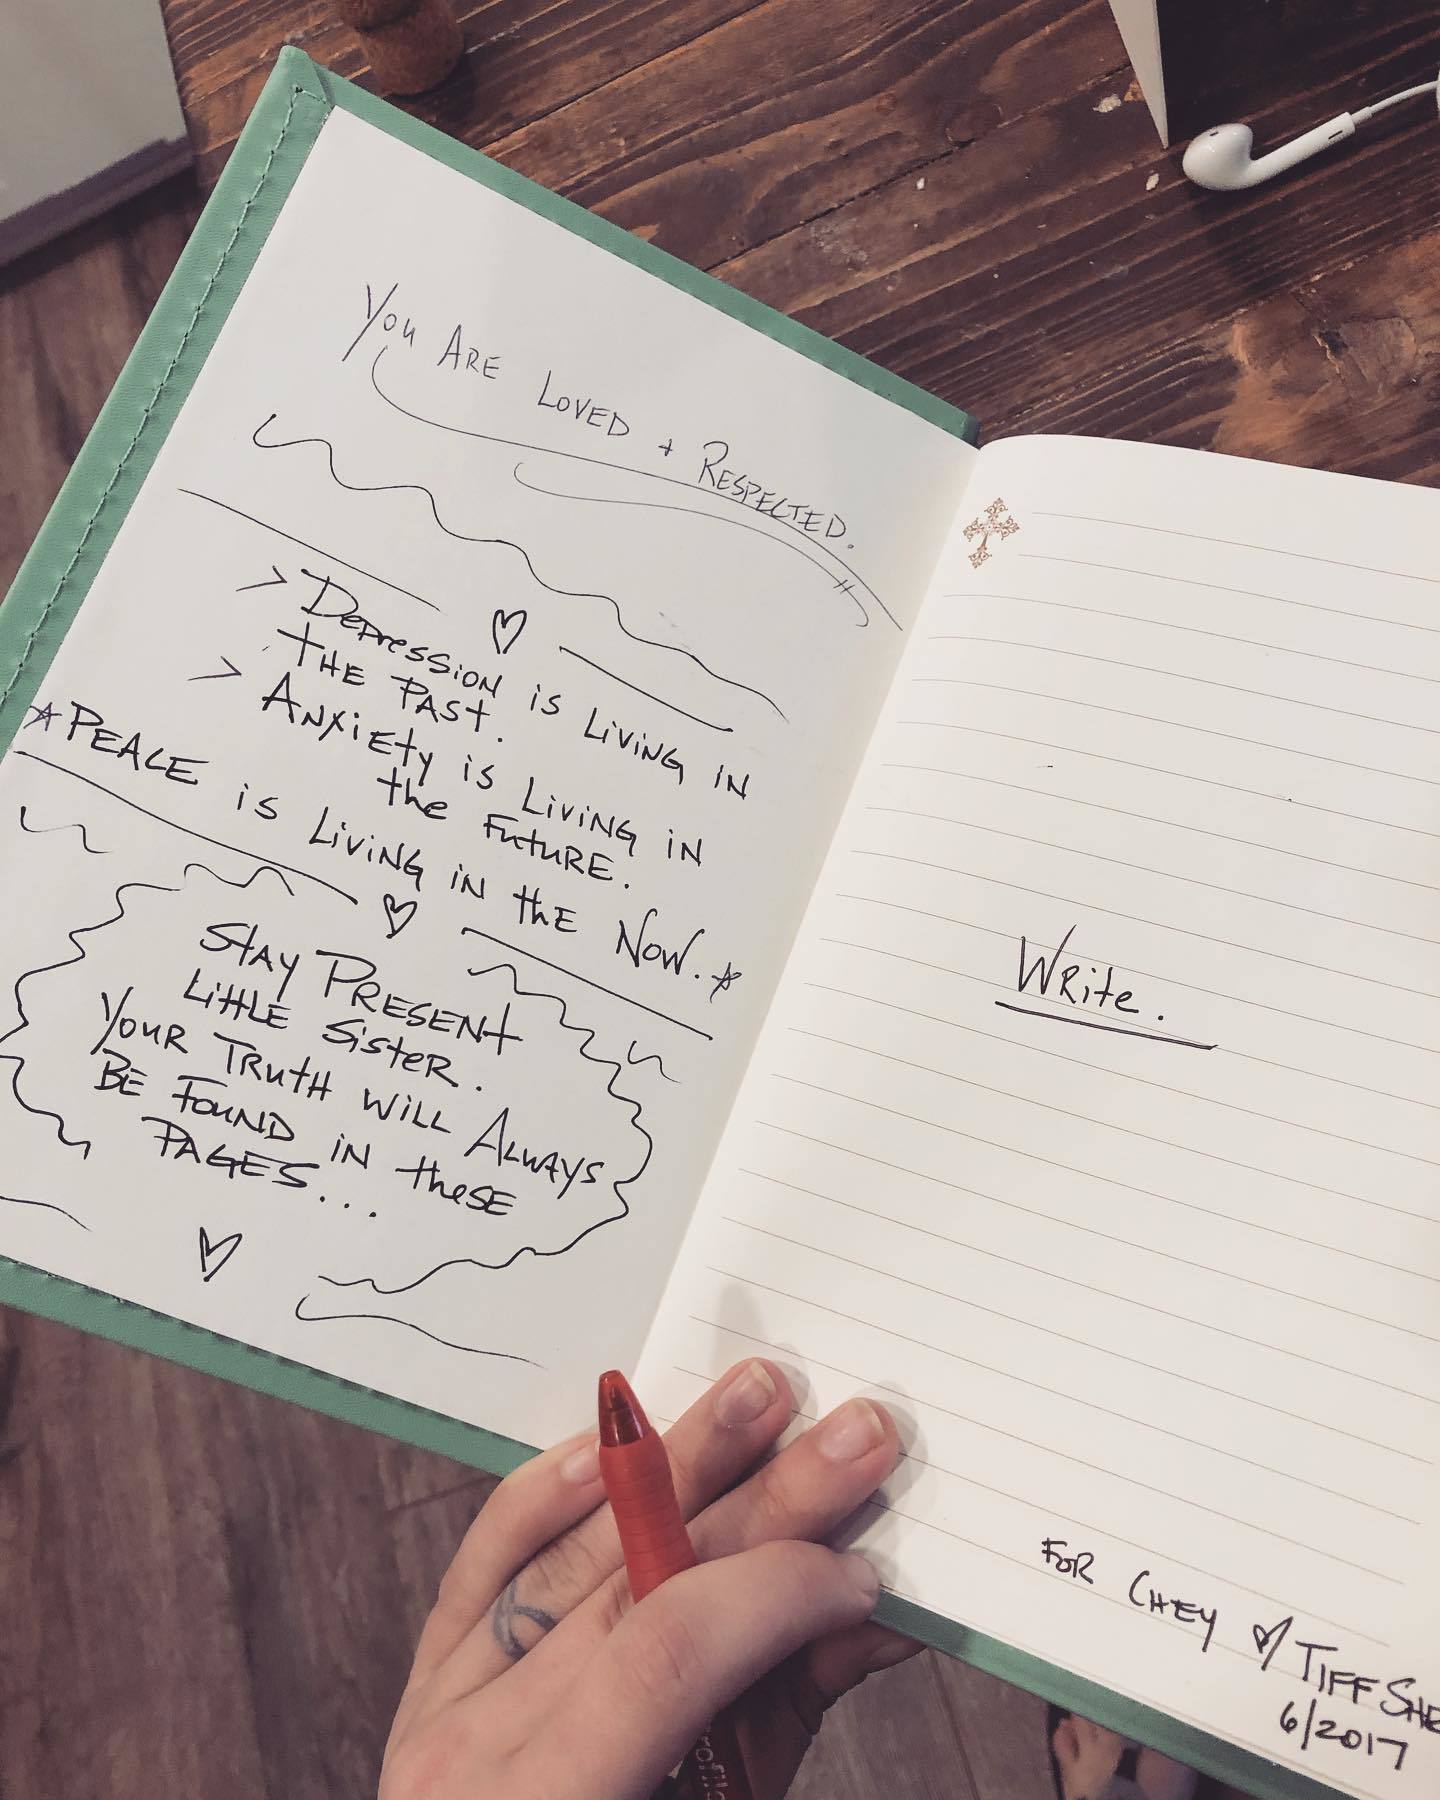 You ARE LOVED + RESPECTED.
> Depression is Living in
the Past.
> Anxiety is Living in
the Future.
PEACE is Living in the Now.
Stay Present
Little Sister.
Your Truth will Always
Be Found in these
Pages...
Write.
For Chey ♡ Tiff
6/2017